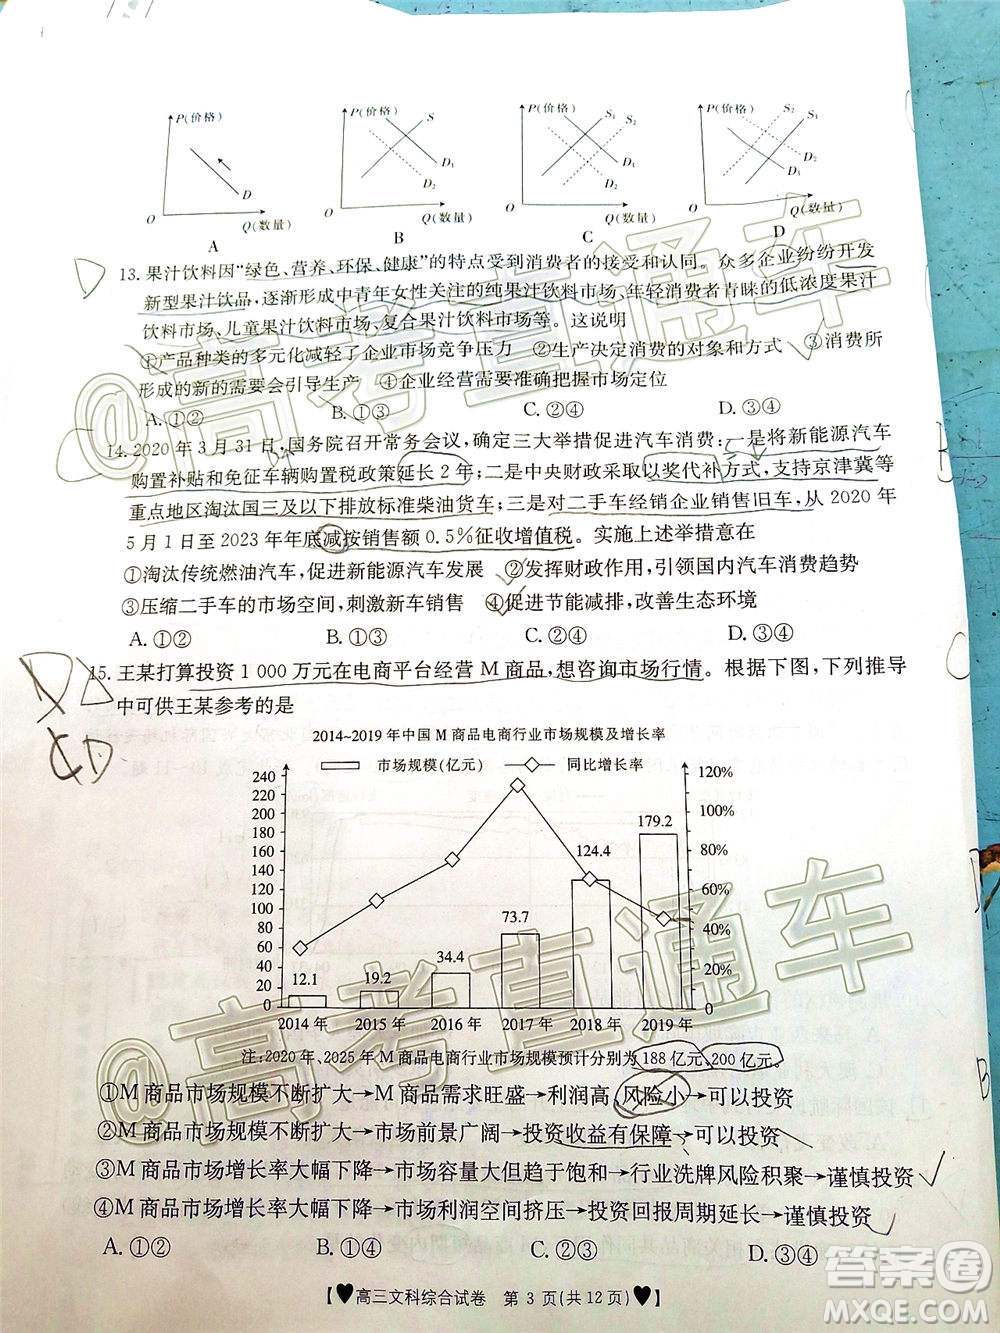 P(价格) P(价格) P(价格) P(价格)
S S₁ S₂ S₂ S₁
D D₁ D₂ D₁ D₂ D₂ D₁
O Q(数量) O Q(数量) O Q(数量) O Q(数量)
A B C D
13. 果汁饮料因“绿色、营养、环保、健康”的特点受到消费者的接受和认同。众多企业纷纷开发
新型果汁饮品,逐渐形成中青年女性关注的纯果汁饮料市场、年轻消费者青睐的低浓度果汁
饮料市场、儿童果汁饮料市场、复合果汁饮料市场等。这说明
①产品种类的多元化减轻了企业市场竞争压力 ②生产决定消费的对象和方式 ③消费所
形成的新的需要会引导生产 ④企业经营需要准确把握市场定位
A.①② B.①③ C.②④ D.③④
14. 2020 年 3 月 31 日,国务院召开常务会议,确定三大举措促进汽车消费:一是将新能源汽车
购置补贴和免征车辆购置税政策延长 2 年;二是中央财政采取以奖代补方式,支持京津冀等
重点地区淘汰国三及以下排放标准柴油货车;三是对二手车经销企业销售旧车,从 2020 年
5 月 1 日至 2023 年年底减按销售额 0.5%征收增值税。实施上述举措意在
①淘汰传统燃油汽车,促进新能源汽车发展 ②发挥财政作用,引领国内汽车消费趋势
③压缩二手车的市场空间,刺激新车销售 ④促进节能减排,改善生态环境
A.①② B.①③ C.②④ D.③④
15. 王某打算投资 1 000 万元在电商平台经营 M 商品,想咨询市场行情。根据下图,下列推导
中可供王某参考的是
2014~2019 年中国 M 商品电商行业市场规模及增长率
市场规模(亿元) 同比增长率
240 220 200 180 160 140 120 100 80 60 40 20 0
120% 100% 80% 60% 40% 20% 0%
12.1 19.2 34.4 73.7 124.4 179.2
2014 年 2015 年 2016 年 2017 年 2018 年 2019 年
注:2020 年、2025 年 M 商品电商行业市场规模预计分别为 188 亿元、200 亿元。
①M 商品市场规模不断扩大→M 商品需求旺盛→利润高,风险小→可以投资
②M 商品市场规模不断扩大→市场前景广阔→投资收益有保障→可以投资
③M 商品市场增长率大幅下降→市场容量大但趋于饱和→行业洗牌风险积聚→谨慎投资
④M 商品市场增长率大幅下降→市场利润空间挤压→投资回报周期延长→谨慎投资
A.①② B.①③ C.②③ D.③④
【♥高三文科综合试卷 第 3 页(共 12 页)♥】
@高考直通车
@高考直通车
答案圈
MXQE.COM
D
B
C
D
B